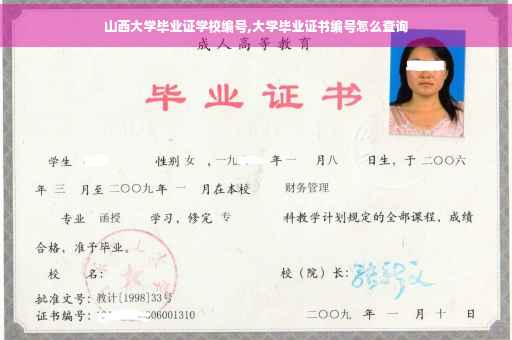 山西大学毕业证学校编号,大学毕业证书编号怎么查询
成人高等教育
毕业证书
学生 性别 女 , 一九 年 一 月 八 日生, 于 二〇〇六
年 三 月至 二〇〇九 年 一 月在本校 财务管理
专业 函授 学习, 修完 专 科教学计划规定的全部课程, 成绩
合格, 准予毕业。
校 名: 校 (院) 长:
批准文号: 教计[1998]33号
证书编号: 06001310 二〇〇九 年 一 月 十 日